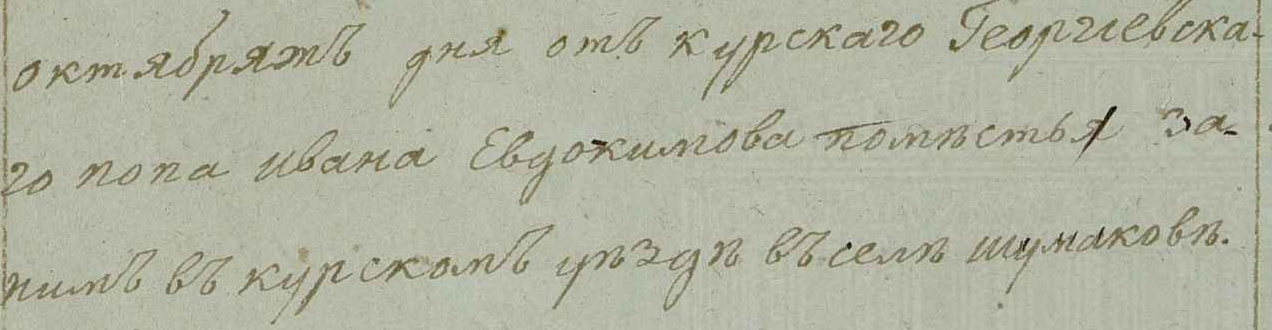 октябряжъ дня отъ курскаго Георгіевска-
го попа ивана Евдокимова помѣстья за-
нимъ въ курскомъ уѣздѣ въ селѣ шумаковѣ.